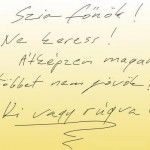 Szia főnök!
Ne keress!
Átképzem magam
többet nem jövök!
Ki vagy rúgva!